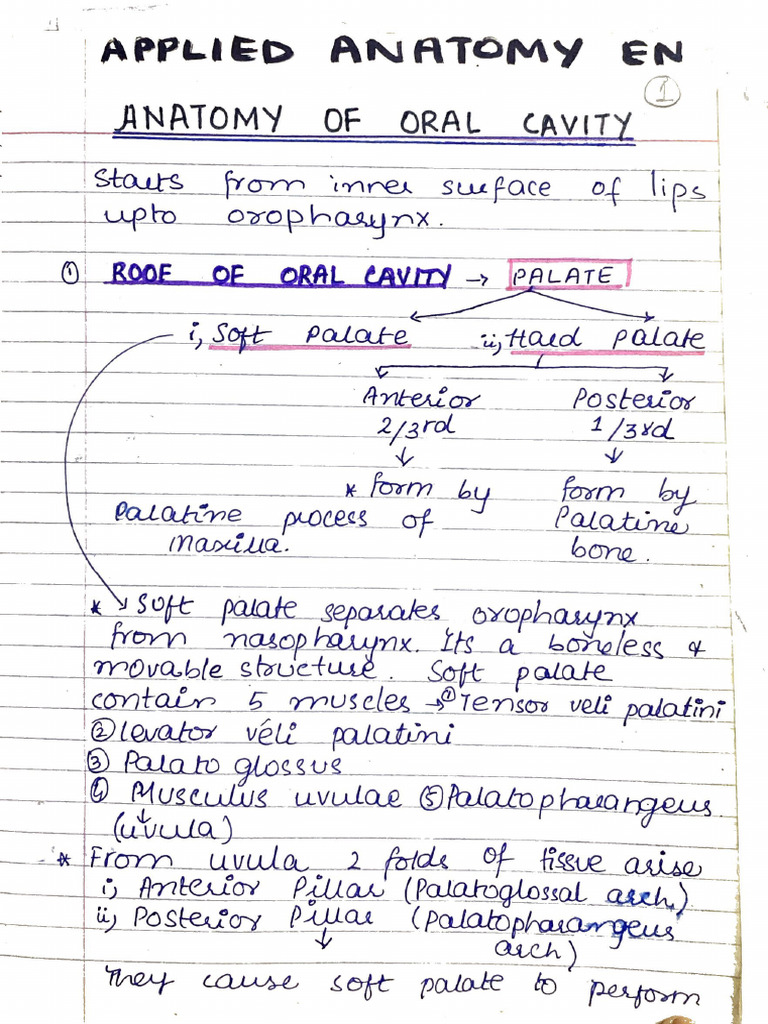 APPLIED ANATOMY EN
1
ANATOMY OF ORAL CAVITY
Starts from inner surface of lips
upto oropharynx.
① ROOF OF ORAL CAVITY → PALATE
i, Soft Palate ii, Hard Palate
Anterior Posterior
2/3rd 1/3rd
* form by form by
Palatine process of Palatine
Maxilla. bone.
* Soft palate separates oropharynx
from nasopharynx. Its a boneless &
movable structure. Soft palate
contain 5 muscles → ① Tensor veli palatini
② levator véli palatini
③ Palato glossus
④ Musculus uvulae ⑤ Palatopharangeus
(uvula)
* From uvula 2 folds of tissue arise
i, Anterior Pillar (Palatoglossal arch)
ii, Posterior Pillar (Palatopharangeus
arch)
They cause soft palate to perform